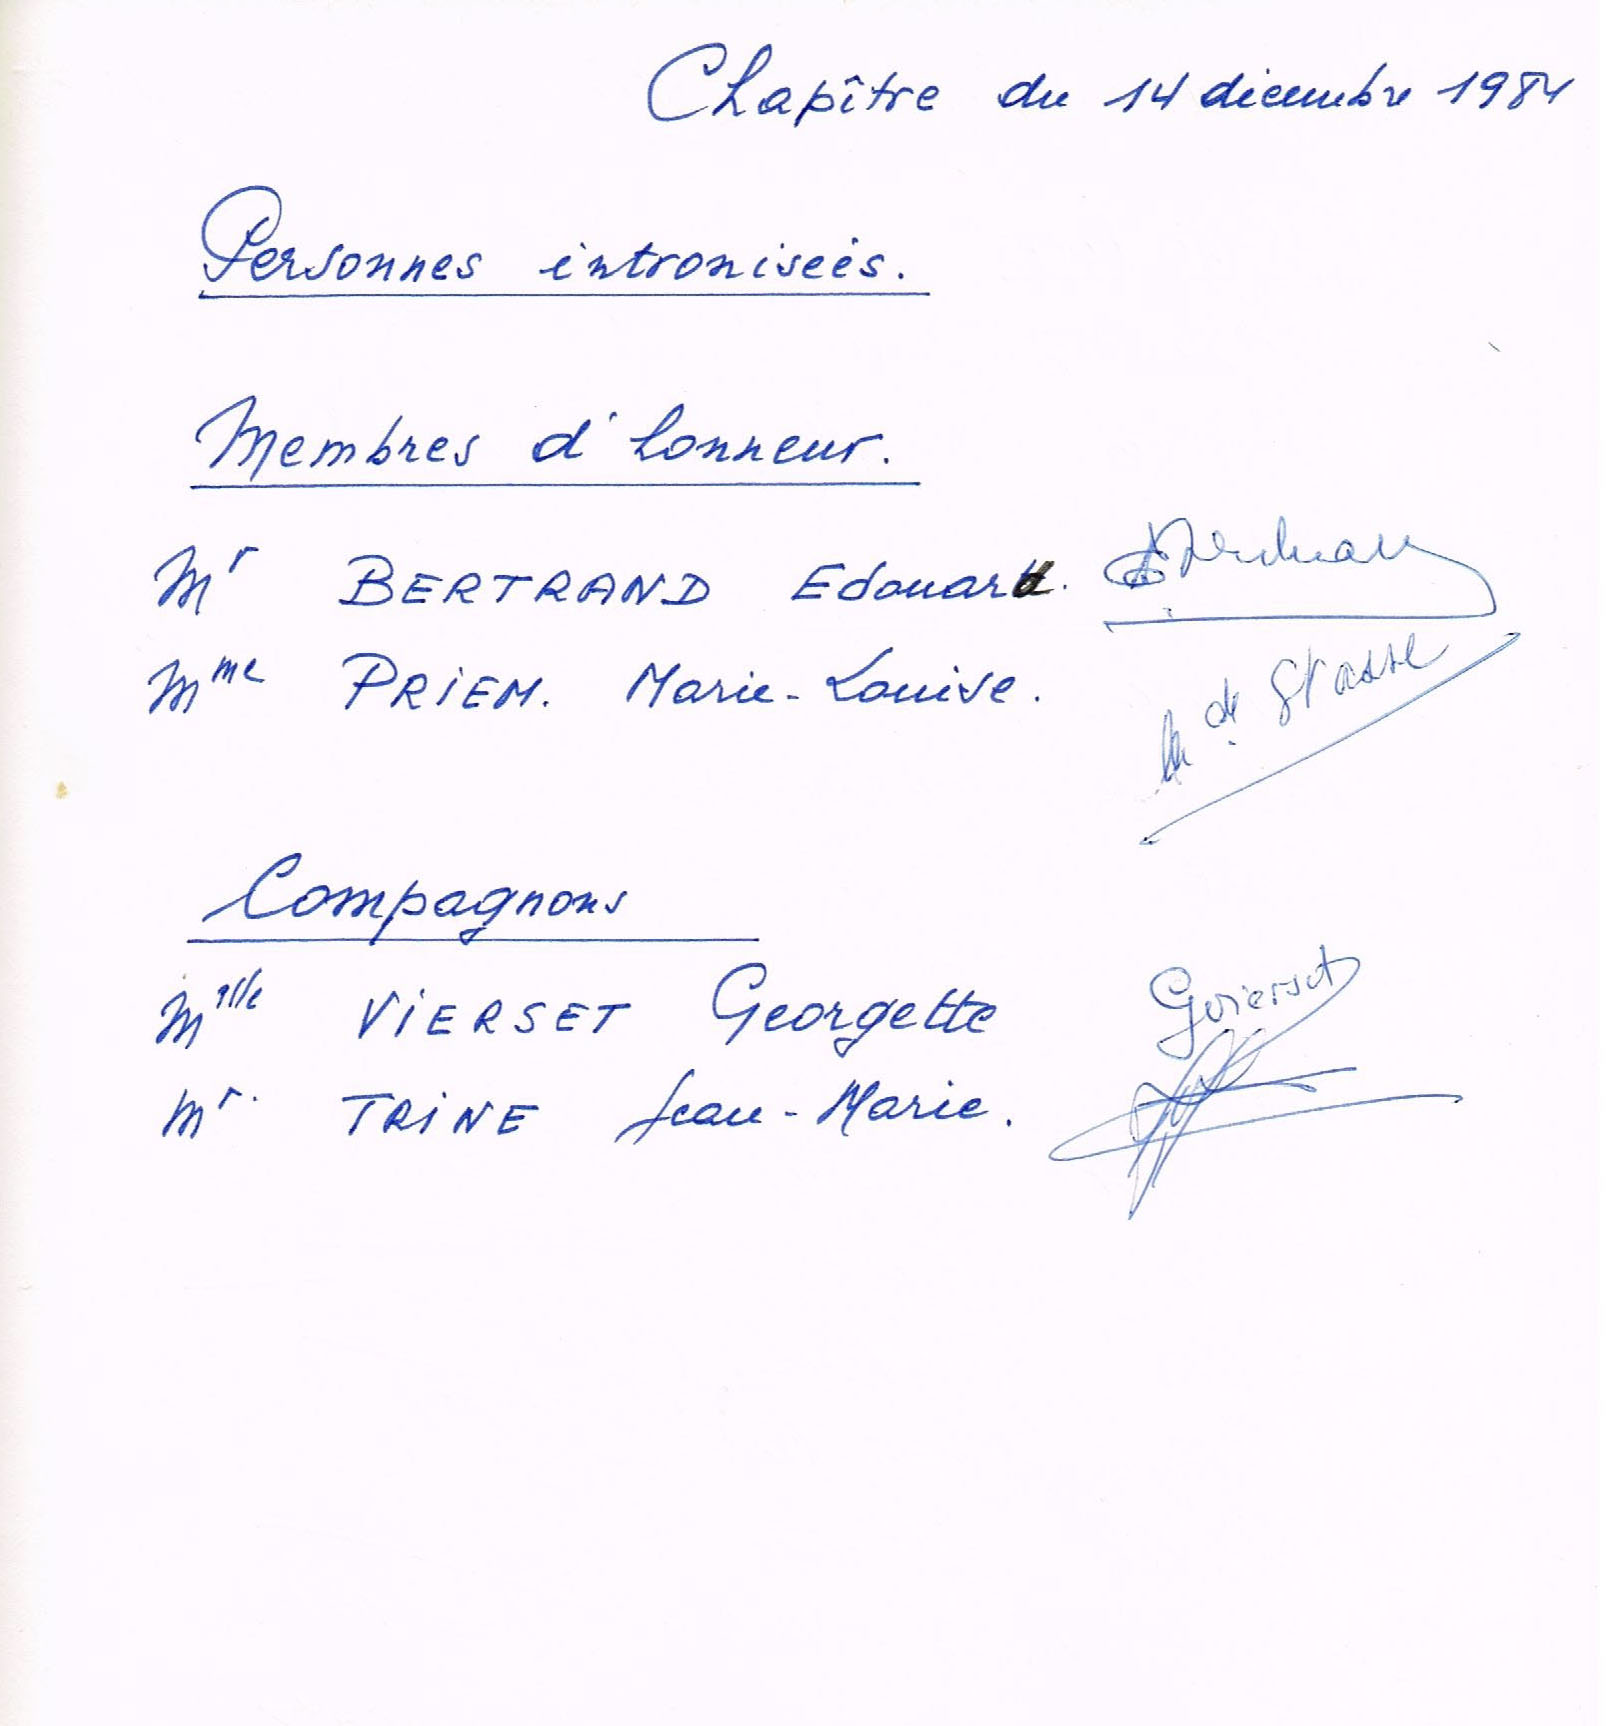 Chapître du 14 décembre 1984
Personnes intronisées.
Membres d'honneur.
Mr BERTRAND Edouard.
Mme PRIEM. Marie-Louise.
Compagnons
Mlle VIERSET Georgette
GVierset
Mr. TRINE Jean-Marie.